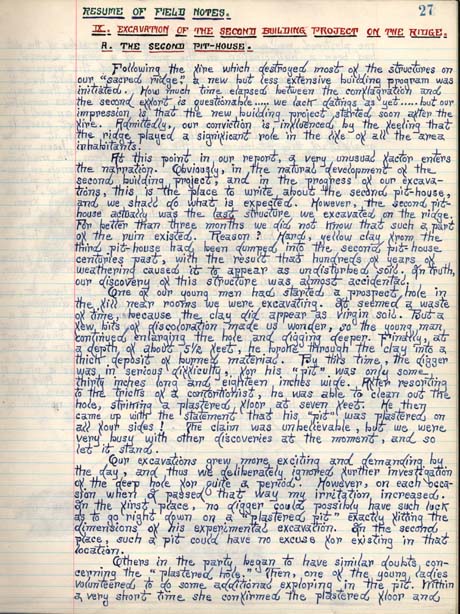 27
RESUME OF FIELD NOTES.
IX. EXCAVATION OF THE SECOND BUILDING PROJECT ON THE RIDGE.
A. THE SECOND PIT-HOUSE.
Following the fire which destroyed most of the structures on
our "sacred ridge," a new but less extensive building program was
initiated. How much time elapsed between the conflagration and
the second effort is questionable..... we lack datings as yet ..... but our
impression is that the new building project started soon after the
fire. Admittedly, our conviction is influenced by the feeling that
the ridge played a significant role in the life of all the area
inhabitants.
At this point in our report, a very unusual factor enters
the narration. Obviously, in the natural development of the
second building project, and in the progress of our excava-
tions, this is the place to write about the second pit-house,
and we shall do what is expected. However, the second pit-
house actually was the last structure we excavated on the ridge.
For better than three months we did not know that such a part
of the ruin existed. Reason? Hard, yellow clay from the
third pit-house had been dumped into the second pit-house
centuries past, with the result that hundreds of years of
weathering caused it to appear as undisturbed soil. In truth,
our discovery of this structure was almost accidental!
One of our young men had started a prospect hole in
the fill near rooms we were excavating. It seemed a waste
of time, because the clay did appear as virgin soil. But a
few bits of discoloration made us wonder, so the young man
continued enlarging the hole and digging deeper. Finally, at
a depth of about 5½ feet, he broke through the clay into a
thick deposit of burned material. By this time, the digger
was in serious difficulty, for his "pit" was only some
thirty inches long and eighteen inches wide. After resorting
to the tricks of a contortionist, he was able to clean out the
hole, striking a plastered floor at seven feet. He then
came up with the statement that his "pit" was plastered on
all four sides! The claim was unbelievable, but we were
very busy with other discoveries at the moment, and so
let it stand.
Our excavations grew more exciting and demanding by
the day, and thus we deliberately ignored further investigation
of the deep hole for quite a period. However, on each occa-
sion when I passed that way my irritation increased.
In the first place, no digger could possibly have such luck
as to go right down on a "plastered pit" exactly fitting the
dimensions of his experimental excavation. In the second
place, such a pit could have no excuse for existing in that
location.
Others in the party began to have similar doubts, con-
cerning the "plastered hole." Then, one of the young ladies
volunteered to do some additional exploring in the pit. Within
a very short time she confirmed the plastered floor and